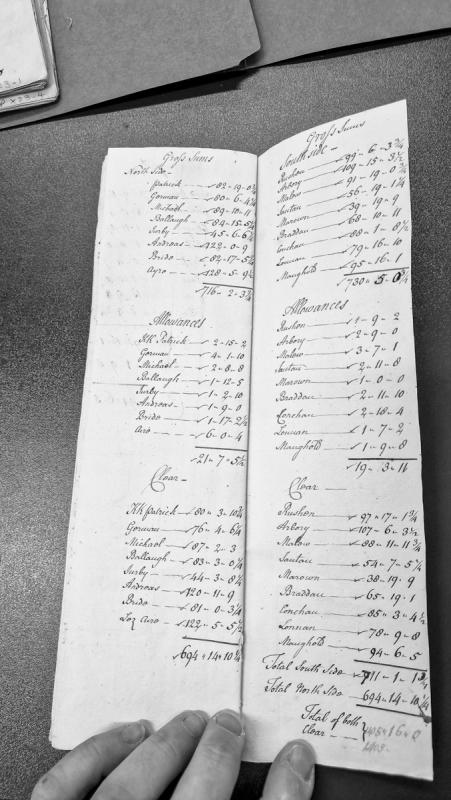 Gross Sums
North Side -
Patrick - 82 - 19 - 0 3/4
Gorman - 80 - 6 - 4 1/4
Michael - 89 - 10 - 11
Ballaugh - 84 - 15 - 5 1/4
Jurby - 45 - 6 - 6 1/2
Andreas - 122 - 0 - 9
Bride - 82 - 17 - 5 1/4
Ayre - 128 - 5 - 9 1/2
716 - 2 - 3 3/4
Allowances
Kk Patrick - 2 - 15 - 2
Gorman - 4 - 1 - 10
Michael - 2 - 8 - 8
Ballaugh - 1 - 12 - 5
Jurby - 1 - 2 - 10
Andreas - 1 - 9 - 0
Bride - 1 - 17 - 2 1/2
Airo - 6 - 0 - 4
21 - 7 - 5 1/2
Clear -
Kk patrick - 80 - 3 - 10 3/4
Gorman - 76 - 4 - 6 1/4
Michael - 87 - 2 - 3
Ballaugh - 83 - 3 - 0 1/4
Jurby - 44 - 3 - 8 1/2
Andreas - 120 - 11 - 9
Bride - 81 - 0 - 3 1/4
Airo - 122 - 5 - 5 1/2
694 - 14 - 10 1/4
Gross Sums
South side -
Rushen - 99 - 6 - 3 3/4
Arbory - 109 - 15 - 3 1/2
Malow - 91 - 19 - 0 3/4
Santan - 56 - 19 - 1 1/4
Marown - 39 - 19 - 9
Braddan - 68 - 10 - 11
Conchan - 88 - 1 - 8 1/2
Lonnan - 79 - 16 - 10
Maughold - 95 - 16 - 1
730 - 5 - 0 3/4
Allowances
Rushen - 1 - 9 - 2
Arbory - 2 - 9 - 0
Malow - 3 - 7 - 1
Santan - 2 - 11 - 8
Marown - 1 - 0 - 0
Braddan - 2 - 11 - 10
Conchan - 2 - 18 - 4
Lonnan - 1 - 7 - 2
Maughold - 1 - 9 - 8
19 - 3 - 11
Clear -
Rushen - 97 - 17 - 1 3/4
Arbory - 107 - 6 - 3 1/2
Malow - 88 - 11 - 11 3/4
Santan - 54 - 7 - 5 1/4
Marown - 38 - 19 - 9
Braddan - 65 - 19 - 1
Conchan - 85 - 3 - 4 1/2
Lonnan - 78 - 9 - 8
Maughold - 94 - 6 - 5
Total South Side - 711 - 1 - 1
Total North Side - 694 - 14 - 10 1/4
Total of both
Clear -